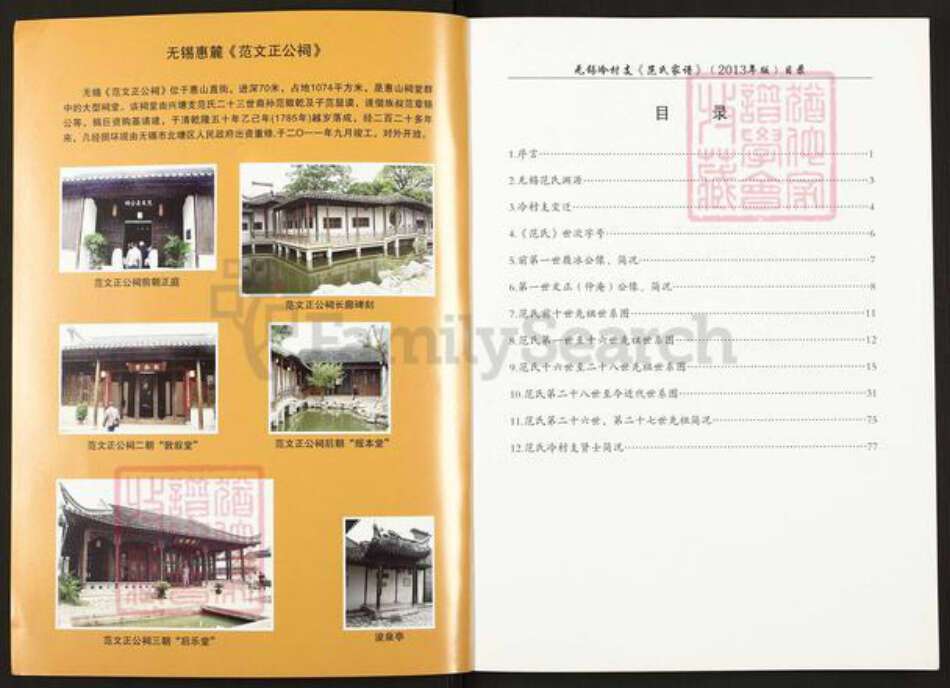 无锡惠麓《范文正公祠》
无锡《范文正公祠》位于惠山直街，进深70米，占地1074平方米，是惠山祠堂群
中的大型祠堂。该祠堂由兴塘支范氏二十三世裔孙范毓乾及子范显谟，请偕族叔范章锦
公等，捐巨资购基请建，于清乾隆五十年乙己年(1785年)越岁落成，经二百二十多年
来，几经损坏现由无锡市北塘区人民政府出资重修,于二〇一一年九月竣工，对外开放。
范文正公祠前朝正庭
范文正公祠长廊碑刻
范文正公祠二朝“敦叙堂”
范文正公祠后朝“报本堂”
范文正公祠三朝“后乐堂”
浚泉亭
无锡冷村支《范氏家谱》（2013年版）目录
目 录
1.序言 1
2.无锡范氏渊源 3
3.冷村支变迁 4
4.《范氏》世次字号 6
5.前第一世履冰公像、简况 7
6.第一世文正（仲淹）公像、简况 8
7.范氏前十世先祖世系图 11
8.范氏第一世至十六世先祖世系图 12
9.范氏十六世至二十八世先祖世系图 15
10.范氏第二十八世至今近代世系图 31
11.范氏第二十六世、第二十七世先祖简况 75
12.范氏冷村支贤士简况 77
FamilySearch